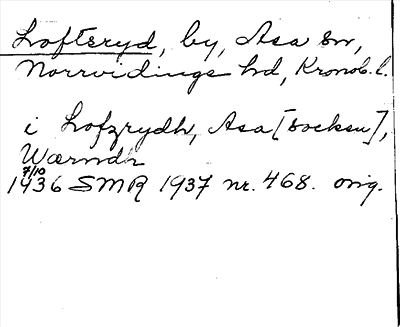 Loftsryd, by, Asa sn,
Norrvidinge hd, Kronob. l.
i Lofzrydh, Asa [socken],
Wærndh
7/10
1436 SMR 1937 nr. 468. orig.